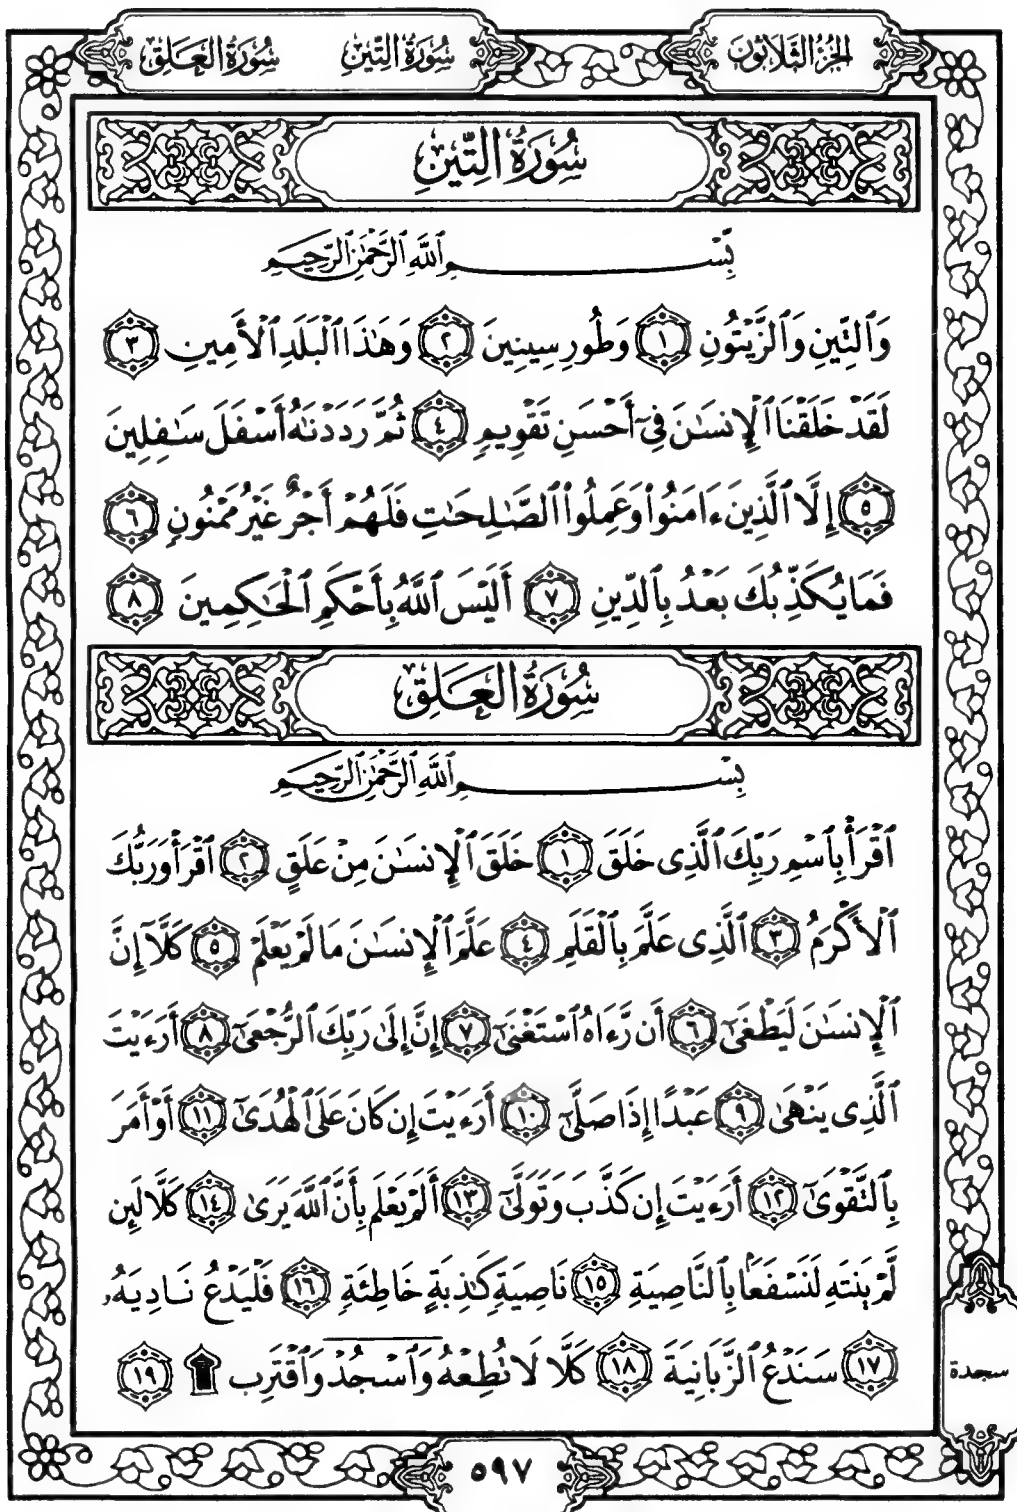 الجزء الثلاثون سُورَةُ التِّينِ سُورَةُ العَلَقِ
سُورَةُ التِّينِ
بِّسْمِ ٱللَّهِ ٱلرَّحْمَٰنِ ٱلرَّحِيمِ
وَٱلتِّينِ وَٱلزَّيْتُونِ ١ وَطُورِ سِينِينَ ٢ وَهَٰذَا ٱلْبَلَدِ ٱلْأَمِينِ ٣
لَقَدْ خَلَقْنَا ٱلْإِنسَٰنَ فِىٓ أَحْسَنِ تَقْوِيمٍ ٤ ثُمَّ رَدَدْنَٰهُ أَسْفَلَ سَٰفِلِينَ
٥ إِلَّا ٱلَّذِينَ ءَامَنُوا۟ وَعَمِلُوا۟ ٱلصَّٰلِحَٰتِ فَلَهُمْ أَجْرٌ غَيْرُ مَمْنُونٍ ٦
فَمَا يُكَذِّبُكَ بَعْدُ بِٱلدِّينِ ٧ أَلَيْسَ ٱللَّهُ بِأَحْكَمِ ٱلْحَٰكِمِينَ ٨
سُورَةُ العَلَقِ
بِسْمِ ٱللَّهِ ٱلرَّحْمَٰنِ ٱلرَّحِيمِ
ٱقْرَأْ بِٱسْمِ رَبِّكَ ٱلَّذِى خَلَقَ ١ خَلَقَ ٱلْإِنسَٰنَ مِنْ عَلَقٍ ٢ ٱقْرَأْ وَرَبُّكَ
ٱلْأَكْرَمُ ٣ ٱلَّذِى عَلَّمَ بِٱلْقَلَمِ ٤ عَلَّمَ ٱلْإِنسَٰنَ مَا لَمْ يَعْلَمْ ٥ كَلَّآ إِنَّ
ٱلْإِنسَٰنَ لَيَطْغَىٰٓ ٦ أَن رَّءَاهُ ٱسْتَغْنَىٰٓ ٧ إِنَّ إِلَىٰ رَبِّكَ ٱلرُّجْعَىٰٓ ٨ أَرَءَيْتَ
ٱلَّذِى يَنْهَىٰ ٩ عَبْدًا إِذَا صَلَّىٰٓ ١٠ أَرَءَيْتَ إِن كَانَ عَلَى ٱلْهُدَىٰٓ ١١ أَوْ أَمَرَ
بِٱلتَّقْوَىٰٓ ١٢ أَرَءَيْتَ إِن كَذَّبَ وَتَوَلَّىٰٓ ١٣ أَلَمْ يَعْلَم بِأَنَّ ٱللَّهَ يَرَىٰ ١٤ كَلَّا لَئِن
لَّمْ يَنتَهِ لَنَسْفَعًۢا بِٱلنَّاصِيَةِ ١٥ نَاصِيَةٍ كَٰذِبَةٍ خَاطِئَةٍ ١٦ فَلْيَدْعُ نَادِيَهُۥ
١٧ سَنَدْعُ ٱلزَّبَانِيَةَ ١٨ كَلَّا لَا تُطِعْهُ وَٱسْجُدْ وَٱقْتَرِب ۩ ١٩
سجدة
٥٩٧